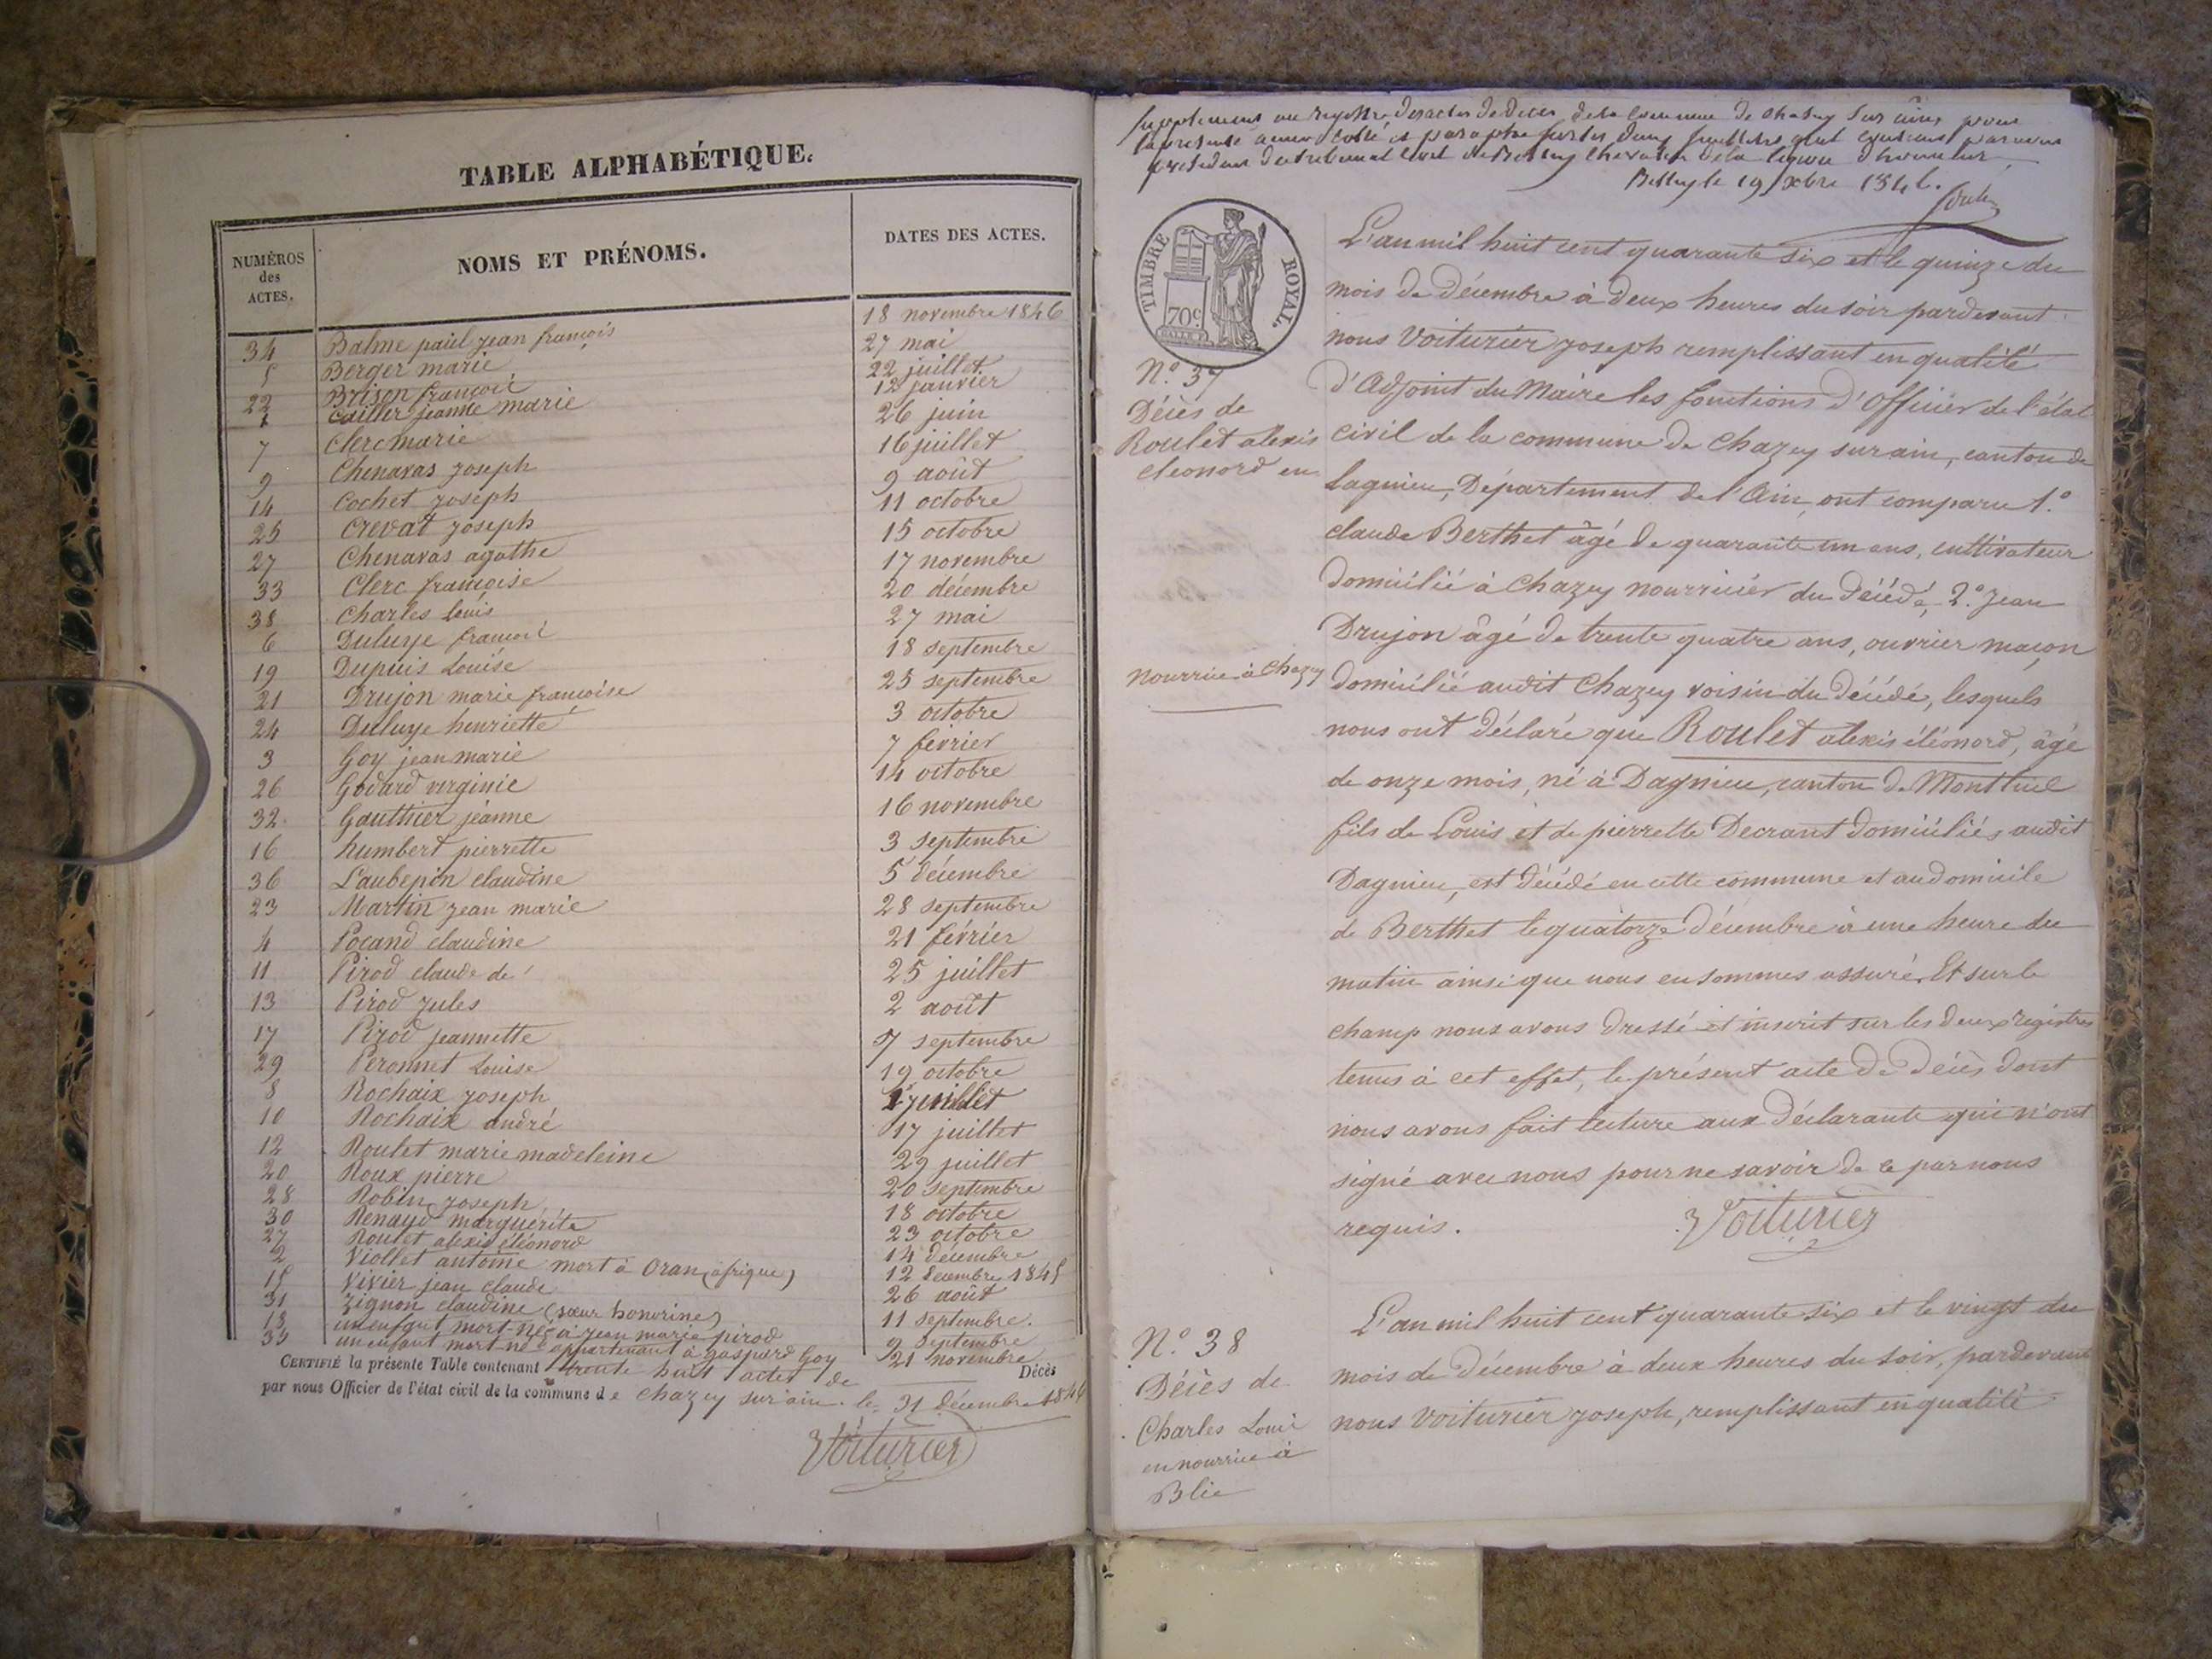 TABLE ALPHABÉTIQUE.
NUMÉROS des ACTES.
NOMS ET PRÉNOMS.
DATES DES ACTES.
34 Balme paul jean françois 18 novembre 1846
5 Berger marie 27 mai
22 Brison françois 22 juillet
1 Cailler jeanne marie 12 janvier
7 Clerc marie 26 juin
9 Chenavas joseph 16 juillet
14 Cochet joseph 9 août
25 Crevat joseph 11 octobre
27 Chenavas agathe 15 octobre
33 Clerc françoise 17 novembre
38 Charles Louis 20 décembre
6 Duluye françois 27 mai
19 Dupuis Louise 18 septembre
21 Drujon marie françoise 25 septembre
24 Duluye henriette 3 octobre
3 Goy jean marie 7 février
26 Godard virginie 14 octobre
32 Gauthier jeanne 16 novembre
16 humbert pierrette 3 septembre
36 Laubepin claudine 5 décembre
23 Martin jean marie 28 septembre
4 Pocand claudine 21 février
11 Pirod claude de 25 juillet
13 Pirod jules 2 août
17 Pirod jeannette 7 septembre
29 Peronnet Louise 19 octobre
8 Rochaix joseph juillet
10 Rochaix andré 17 juillet
12 Roulet marie madeleine 29 juillet
20 Roux pierre 20 septembre
28 Robin joseph 18 octobre
30 Renaud marguérite 23 octobre
27 Roulet alexis éléonord 14 décembre
2 Viollet antoine mort à Oran (afrique) 12 décembre 1845
15 Vivier jean claude 26 août
31 Zignon claudine (sœur honorine) 11 septembre.
18 un enfant mort-né à jean marie pirod 9 septembre
35 un enfant mort-né appartenant à gaspard Goy 21 novembre
CERTIFIÉ la présente Table contenant trente huit actes de Décès
par nous Officier de l'état civil de la commune de Chazey sur ain. le 31 décembre 1846
Voiturier
Supplement au registre des actes de deces de la commune de Chazey sur ain pour
la presente année cotté et paraphé
president du tribunal civil de Belley chevalier de la légion d'honneur
Belley le 19 Xbre 1846.
TIMBRE ROYAL.
70c
N.° 37
Décès de
Roulet alexis
eleonord en
nourrice à Chazey
L'an mil huit cent quarante six et le quinze du
mois de décembre à deux heures du soir pardevant
nous Voiturier joseph remplissant en qualité
d'Adjoint du Maire les fonctions d'Officier de l'état
civil de la commune de Chazey sur ain, canton de
Lagnieu, Département de l'Ain, ont comparu 1.°
claude Berthet âgé de quarante un ans, cultivateur
domicilié à Chazey nourricier du décédé, 2.° Jean
Drujon âgé de trente quatre ans, ouvrier maçon
domicilié audit Chazey voisin du décédé, lesquels
nous ont déclaré que Roulet alexis éléonord, âgé
de onze mois, né à Dagnieu, canton de Montluel
fils de Louis et de pierrette Decrant domiciliés audit
Dagnieu, est décédé en cette commune et au domicile
de Berthet le quatorze décembre à une heure du
matin ainsi que nous en sommes assuré. Et sur le
champ nous avons dressé et inscrit sur les deux registres
tenus à cet effet, le présent acte de décès dont
nous avons fait lecture aux déclarants qui n'ont
signé avec nous pour ne savoir de ce par nous
requis.
Voiturier
N.° 38
Décès de
Charles Louis
en nourrice à
Blie
L'an mil huit cent quarante six et le vingt du
mois de décembre à deux heures du soir, pardevant
nous Voiturier joseph, remplissant en qualité